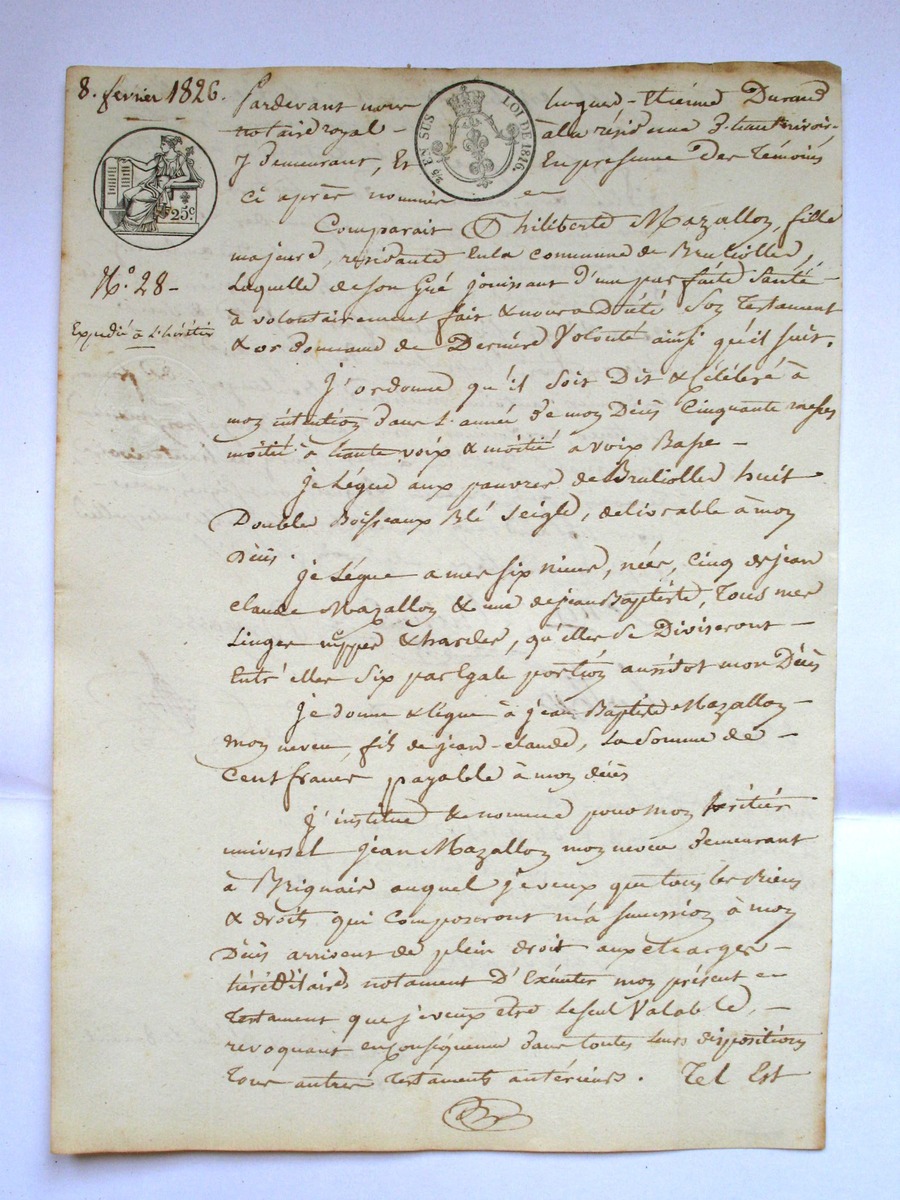 8. février 1826.
Pardevant nous hugues-Etienne Durand
notaire royal - à la résidence d'hauterivoire
y demeurant, Et En présence Des Témoins
ci après nommés
25 EN SUS LOI DE 1816.
25c
N.° 28 -
Expédié à L'héritier
Comparait Philiberte Mazallon, fille
majeure, résidante En la commune de Brulioles,
Laquelle de son Gré jouissant d'une parfaite Santé
à volontairement fait & nous a Dicté Son Testament
& ordonnance de Dernière Volonté ainsi qu'il suit.
J'ordonne qu'il Soit Dit & Célébré à
mon intention dans L'année de mon Décès Cinquante messes
moitié à haute voix & moitié à voix Basse -
je Lègue aux pauvres de Brulioles huit
Doubles Boisseaux Blé Seigle, délivrable à mon
Décès.
je Lègue a mes six nieces, nées, cinq de jean
claude Mazallon & une de jean Baptiste, Tous mes
Linges nippes & hardes, qu'elles se Diviseront -
Entr'elles Six par Egale portion aussidot mon Décès
je donne & lègue à jean Baptiste Mazallon -
mon neveu, fils de jean-claude, la Somme de -
Cent francs payable à mon décès
J'institue & nomme pour mon héritier
universel jean Mazallon mon neveu demeurant
à Brignais auquel je veux que tous les Biens
& droits qui Composeront ma succession à mon
Décès arrivent de plein droit aux charges -
héréditaires notament D'Exécuter mon présent
Testament que je veux etre Le seul Valable, -
revoquant en conséquence dans toutes leurs dispositions
Tous autres Testaments antérieurs. Tel Est